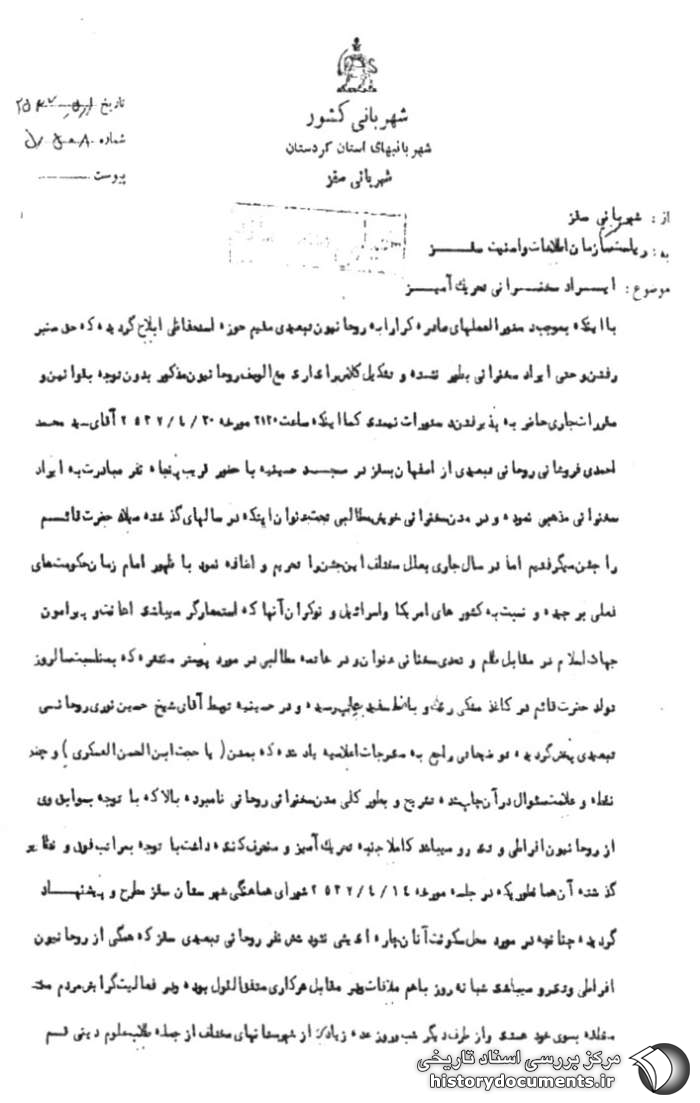 شهربانی کشور
شهربانیهای استان کردستان
شهربانی سقز
تاریخ
شماره
پیوست
از : شهربانی سقز
به : ریاست سازمان اطلاعات و امنیت سقز
موضوع : ایراد سخنرانی تحریک آمیز
با اینکه بموجب دستورالعملهای صادره کرارا به روحانیون تبعیدی مقیم حوزه استحفاظی ابلاغ گردیده که حق منبر
رفتن و حتی ایراد سخنرانی بطور نشسته و تشکیل کلاس را نداری مع الوصف روحانیون مذکور بدون توجه بقوانین و
مقررات جاری حاضر به پذیرفتن دستورات نیستندی کما اینکه ساعت ۲۱۲۰ مورخه ۲۵۳۷/۴/۳۰ آقای سید محمد
احمدی فروشانی روحانی تبعیدی از اصفهان بسقز در مسجد حسینیه با حضور قریب پنجاه نفر مبادرت به ایراد
سخنرانی مذهبی نموده و در متن سخنرانی خویش مطالبی تحت عنوان اینکه در سالهای گذشته میلاد حضرت قائم
را جشن میگرفتیم اما در سال جاری بعلل مختلف این جشن را تحریم و اضافه نمود با ظهور امام زمان حکومت های
فعلی برچیده و نسبت به کشور های امریکا و اسرائیل و نوکران آنها که استعمارگر میباشندی اهانت و پیرامون
جهاد اسلام در مقابل ظلم و تعدی سخنانی عنوان و در خاتمه مطالبی در مورد پوستر منتشره که بمناسبت سالروز
تولد حضرت قائم در کاغذ مشکی رنگ و با خط سفید بچاپ رسیده و در حسینیه توسط آقای شیخ حسین نوری روحانی
تبعیدی پخش گردیده توضیحاتی راجع به مندرجات اعلامیه یاد شده که بمتن ( یا حجت ابن الحسن العسکری ) و چند
نقطه و علامت سئوال در آن چاپ شده تشریح و بطور کلی متن سخنرانی روحانی نامبرده بالا که با توجه بسوابق وی
از روحانیون افراطی و تندرو میباشد کاملا جنبه تحریک آمیز و منحرف کننده داشت با توجه بمراتب فوق و نظایر
گذشته آن همانطوریکه در جلسه مورخه ۲۵۳۷/۴/۱۴ شورای هماهنگی شهرستان سقز مطرح و پیشنهاد
گردیده چنانچه در مورد محل سکونت آنان چاره اندیشی نشود شش نفر روحانی تبعیدی سقز که همگی از روحانیون
افراطی و تندرو میباشندی شبانه روز باهم ملاقات و در مقابل هرکاری متفق القول بوده و در فعالیت گرایش مردم
منطقه بسوی خود هستندی و از طرف دیگر شب و روز عده زیادی از شهرستانهای مختلف از جمله طلاب علوم دینی قم
مرکز بررسی اسناد تاریخی
historydocuments.ir